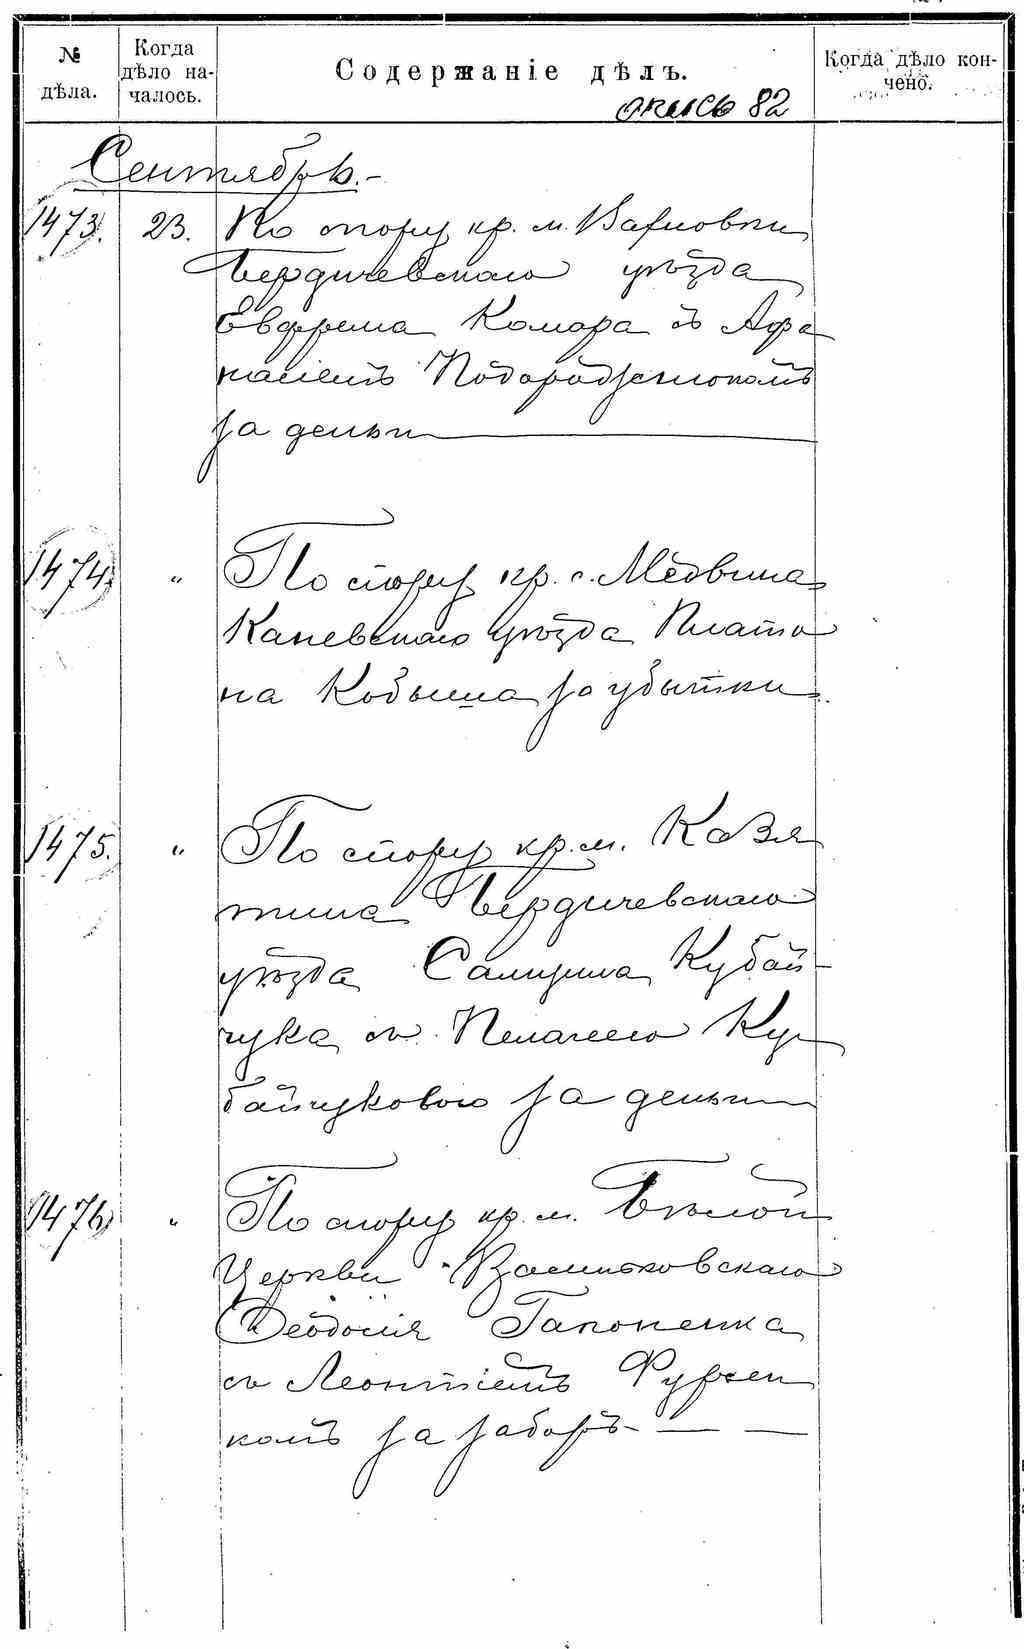 № дѣла.
Когда дѣло на-
чалось.
Содержаніе дѣлъ.
Когда дѣло кон-
чено.
опись 82
Сентябрь.-
1473. 23. По спору кр. м. Вахновки
Бердичевскаго уѣзда
Евфрема Комара съ Афа
насіемъ
за деньги
1474. " По спору кр. с. Медвина
Каневскаго уѣзда Плато
на за убытки.
1475. " По спору кр. м. Казя
тина Бердичевскаго
уѣзда Кубай-
чука съ Пелагеею Ку
байчуковою за деньги
1476. " По спору кр. м. Бѣлой
Церкви Васильковскаго
Феодосія Гапоненка
съ Леонтіемъ Фурсен
комъ за заборъ